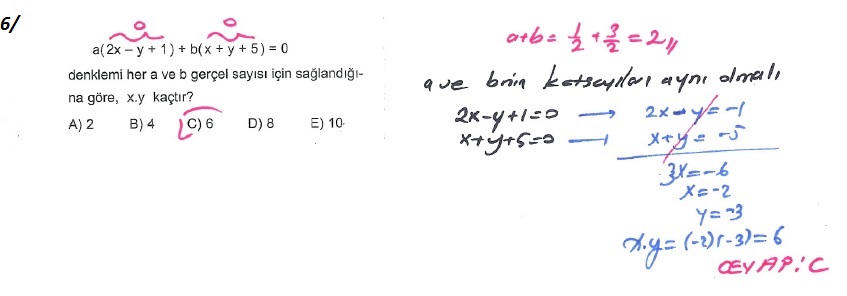 6/
0 0
a(2x – y + 1) + b(x + y + 5) = 0
denklemi her a ve b gerçel sayısı için sağlandığı-
na göre, x.y kaçtır?
A) 2 B) 4 C) 6 D) 8 E) 10
a+b= 1/2 + 3/2 = 2//
a ve b nin katsayıları aynı olmalı
2x-y+1=0 → 2x-y=-1
x+y+5=0 → x+y=-5
3x=-6
x=-2
y=-3
x.y=(-2)(-3)=6
CEVAP: C